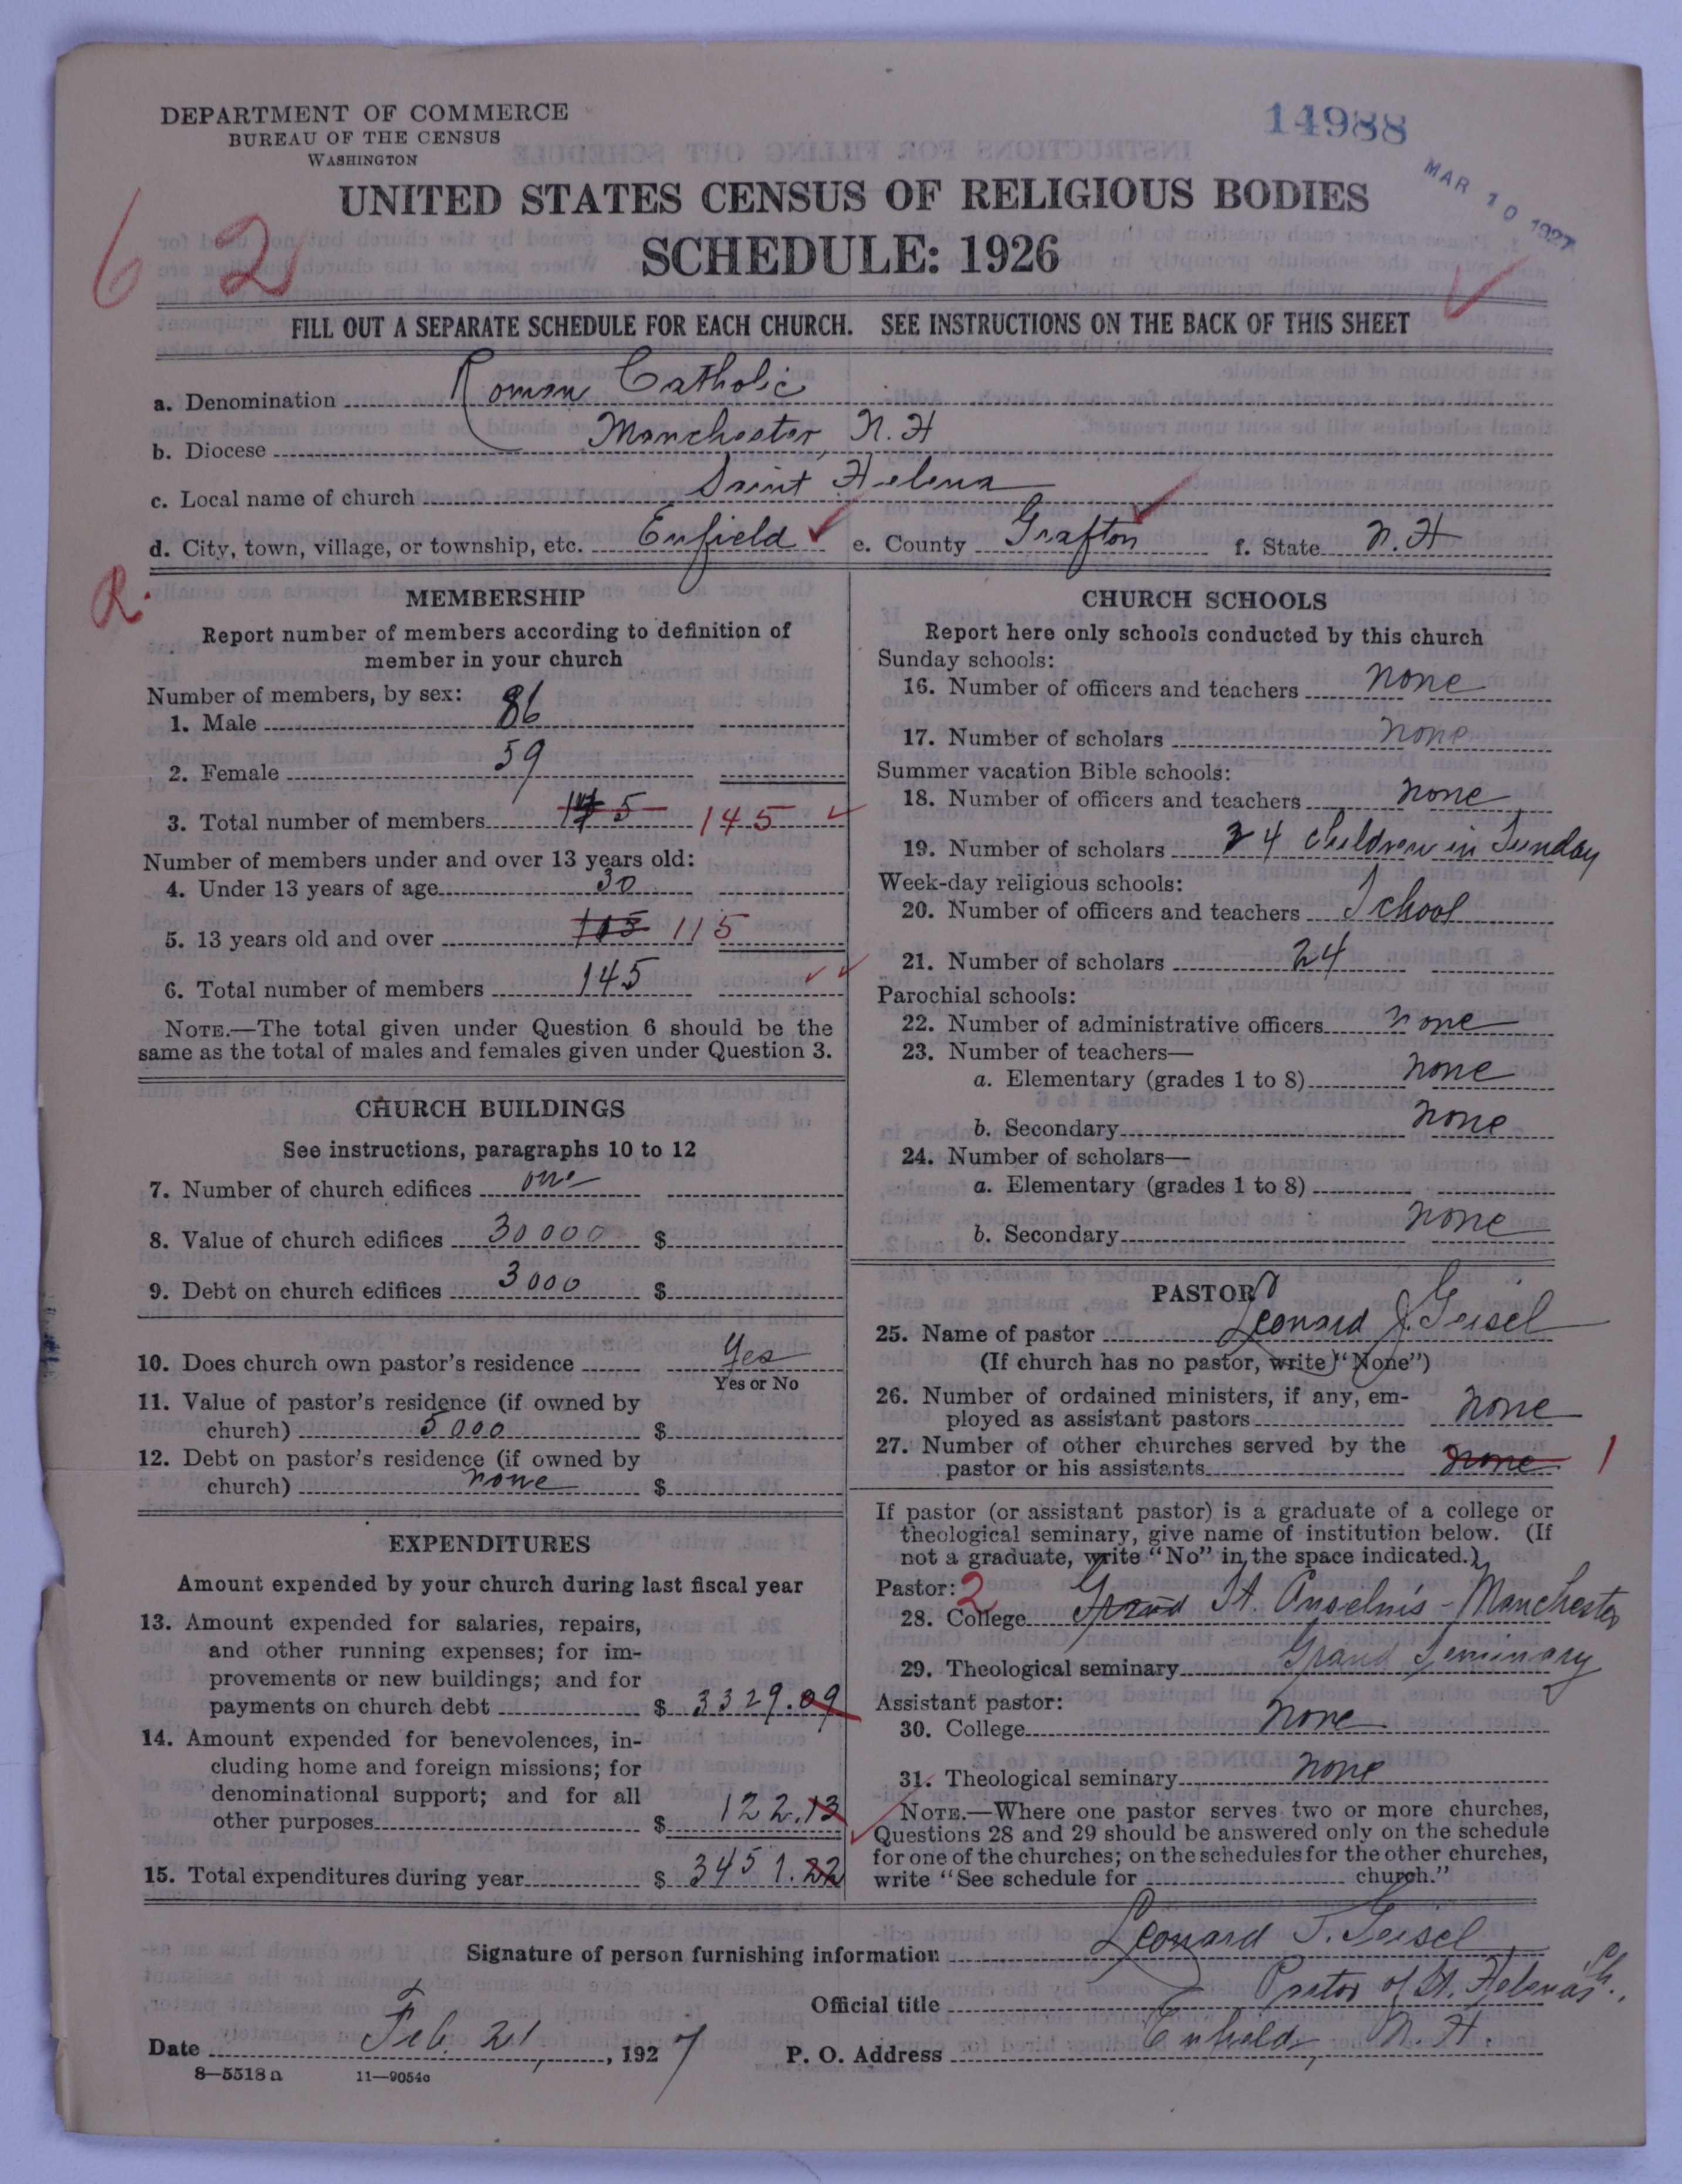 DEPARTMENT OF COMMERCE
BUREAU OF THE CENSUS
WASHINGTON
14988
MAR 10 1927
62
UNITED STATES CENSUS OF RELIGIOUS BODIES
SCHEDULE: 1926
FILL OUT A SEPARATE SCHEDULE FOR EACH CHURCH. SEE INSTRUCTIONS ON THE BACK OF THIS SHEET
a. Denomination Roman Catholic
b. Diocese Manchester, N. H
c. Local name of church Saint Helena
d. City, town, village, or township, etc. Enfield ✓ e. County Grafton f. State N. H
R.
MEMBERSHIP
Report number of members according to definition of
member in your church
Number of members, by sex:
1. Male 86
2. Female 59
3. Total number of members 145
Number of members under and over 13 years old:
4. Under 13 years of age 30
5. 13 years old and over 105 115
6. Total number of members 145
NOTE.—The total given under Question 6 should be the
same as the total of males and females given under Question 3.
CHURCH BUILDINGS
See instructions, paragraphs 10 to 12
7. Number of church edifices one
8. Value of church edifices 30000 $
9. Debt on church edifices 3000 $
10. Does church own pastor's residence Yes
Yes or No
11. Value of pastor's residence (if owned by
church) 5000 $
12. Debt on pastor's residence (if owned by
church) none $
EXPENDITURES
Amount expended by your church during last fiscal year
13. Amount expended for salaries, repairs,
and other running expenses; for im-
provements or new buildings; and for
payments on church debt $ 3329.09
14. Amount expended for benevolences, in-
cluding home and foreign missions; for
denominational support; and for all
other purposes $ 122.13
15. Total expenditures during year $ 3451.22
CHURCH SCHOOLS
Report here only schools conducted by this church
Sunday schools:
16. Number of officers and teachers none
17. Number of scholars none
Summer vacation Bible schools:
18. Number of officers and teachers none
19. Number of scholars 24 children in Sunday
Week-day religious schools:
20. Number of officers and teachers School
21. Number of scholars 24
Parochial schools:
22. Number of administrative officers none
23. Number of teachers—
a. Elementary (grades 1 to 8) none
b. Secondary none
24. Number of scholars—
a. Elementary (grades 1 to 8)
b. Secondary none
PASTOR
25. Name of pastor Leonard J. Geisel
(If church has no pastor, write "None")
26. Number of ordained ministers, if any, em-
ployed as assistant pastors none
27. Number of other churches served by the
pastor or his assistants none 1
If pastor (or assistant pastor) is a graduate of a college or
theological seminary, give name of institution below. (If
not a graduate, write "No" in the space indicated.)
Pastor: 2
28. College Grand St. Anselm's - Manchester
29. Theological seminary Grand Seminary
Assistant pastor:
30. College none
31. Theological seminary none
NOTE.—Where one pastor serves two or more churches,
Questions 28 and 29 should be answered only on the schedule
for one of the churches; on the schedules for the other churches,
write "See schedule for church."
Signature of person furnishing information Leonard J. Geisel
Official title Pastor of St. Helena's Ch.,
Date Feb. 21, 1927 P. O. Address Enfield, N. H.
8—5518a 11—9054c